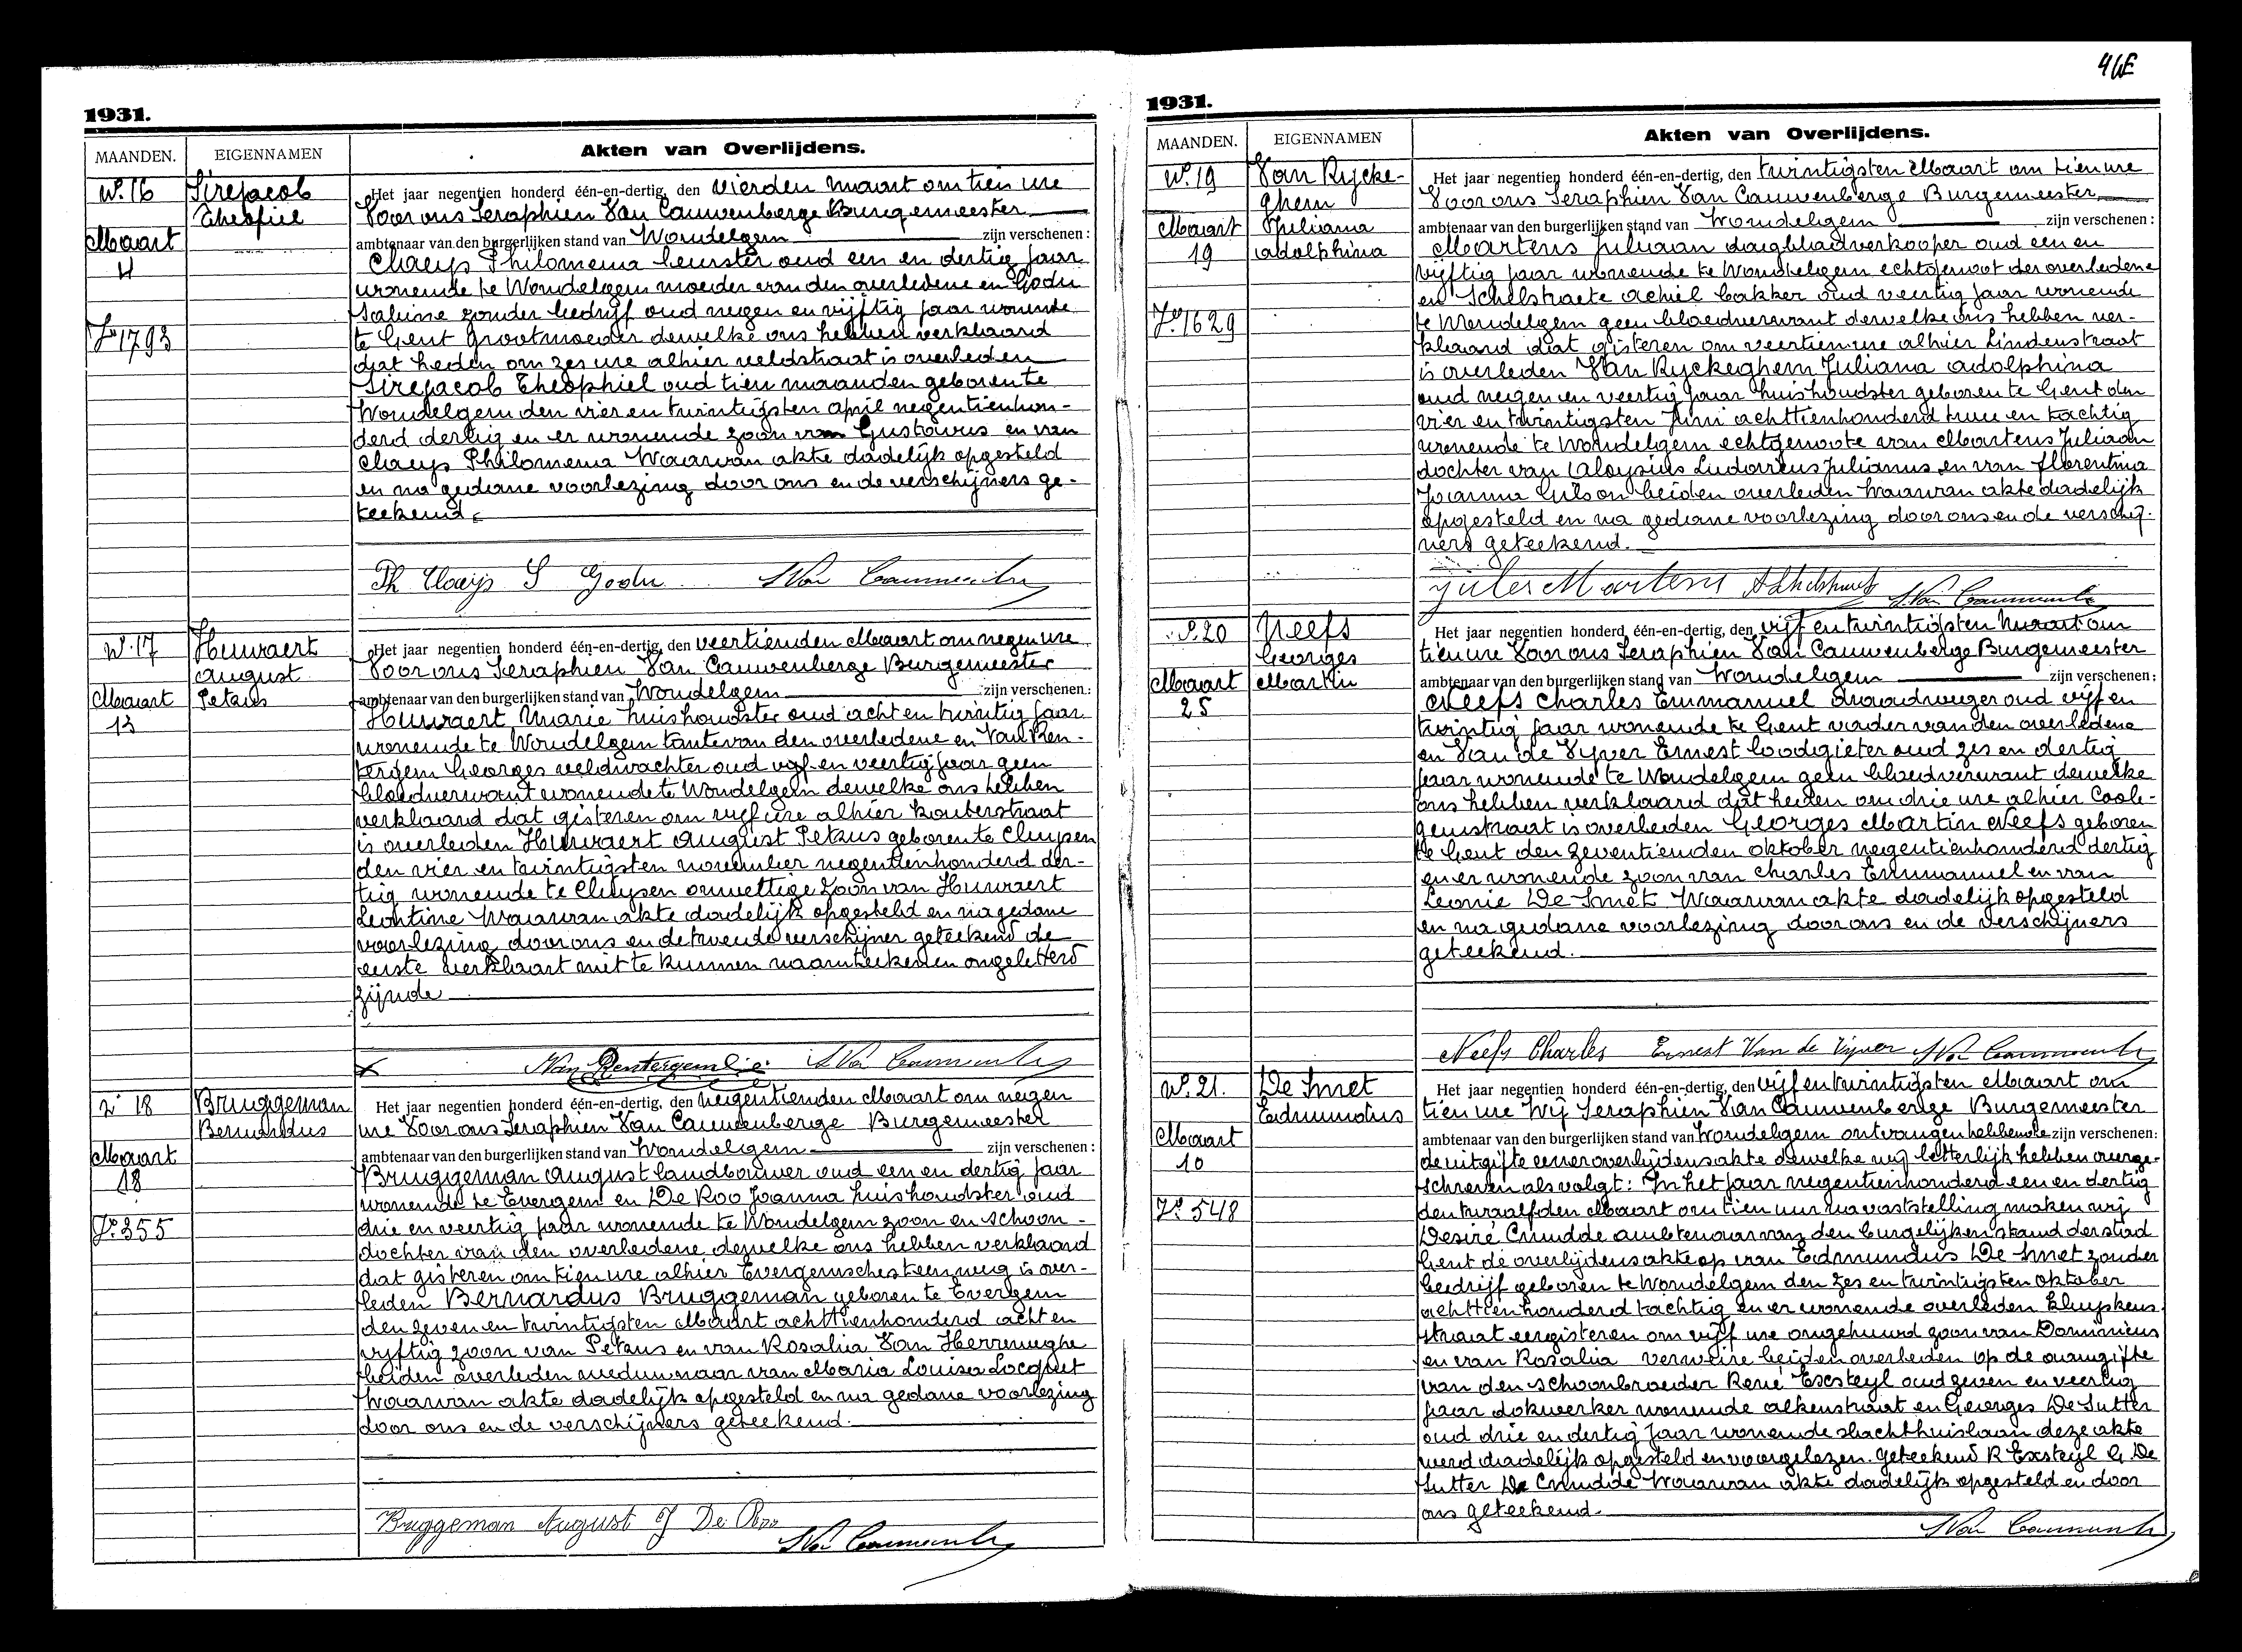 4
1931.
MAANDEN.
EIGENNAMEN
Akten van Overlijdens.
N°. 16
Sirejacob
Theofiel
Maart
4
F° 1793
Het jaar negentien honderd één-en-dertig, den vierden maart om tien ure
Voor ons Seraphien Van Cauwenberge Burgemeester
ambtenaar van den burgerlijken stand van Wondelgem zijn verschenen :
Claeys Philomena oud een en dertig jaar
wonende te Wondelgem moeder van den overledene en Godu
Sabine zonder bedrijf oud negen en vijftig jaar wonende
te Gent Grootmoeder dewelke ons hebben verklaard
dat heden om zes ure alhier veldstraat is overleden
Sirejacob Theophiel oud tien maanden geboren te
Wondelgem den vier en twintigsten april negentienhon-
derd dertig en er wonende zoon van Gustavus en van
Claeys Philomena Waarvan akte dadelijk opgesteld
en na gedane voorlezing door ons en de verschijners ge-
teekend
Ph Claeys S Godu S Van Cauwenberge
N°. 17
Huwaert
August
Petrus
Maart
13
Het jaar negentien honderd één-en-dertig, den veertienden Maart om negen ure
Voor ons Seraphien Van Cauwenberge Burgemeester
ambtenaar van den burgerlijken stand van Wondelgem zijn verschenen :
Huwaert Marie huishoudster oud acht en twintig jaar
wonende te Wondelgem tante van den overledene en Van Ren-
tergem Georges veldwachter oud vijf en veertig jaar geen
bloedverwant wonende te Wondelgem dewelke ons hebben
verklaard dat gisteren om vijf ure alhier kouterstraat
is overleden Huwaert August Petrus geboren te Cluysen
den vier en twintigsten november negentienhonderd der-
tig wonende te Cluysen onwettige zoon van Huwaert
Leontine Waarvan akte dadelijk opgesteld en na gedane
voorlezing door ons en de tweede verschijner geteekend de
eerste verklaart niet te kunnen naamteekenen ongeletterd
zijnde
x Van Rentergem S Van Cauwenberge
N° 18
Bruggeman
Bernardus
Maart
18
F° 355
Het jaar negentien honderd één-en-dertig, den negentienden Maart om negen
ure Voor ons Seraphien Van Cauwenberge Burgemeester
ambtenaar van den burgerlijken stand van Wondelgem zijn verschenen :
Bruggeman August landbouwer oud een en dertig jaar
wonende te Evergem en De Roo Joanna huishoudster oud
drie en veertig jaar wonende te Wondelgem zoon en schoon-
dochter van den overledene dewelke ons hebben verklaard
dat gisteren om tien ure alhier Evergemschesteenweg is over-
leden Bernardus Bruggeman geboren te Evergem
den zeven en twintigsten Maart achttienhonderd acht en
vijftig zoon van Petrus en van Rosalia Van Herreweghe
beiden overleden weduwnaar van Maria Louisa Locquet
Waarvan akte dadelijk opgesteld en na gedane voorlezing
door ons en de verschijners geteekend.
Bruggeman August J De Roo
S Van Cauwenberge
1931.
MAANDEN.
EIGENNAMEN
Akten van Overlijdens.
N°. 19
Van Rycke-
ghem
Juliana
Adolphina
Maart
19
F° 1629
Het jaar negentien honderd één-en-dertig, den twintigsten Maart om tien ure
Voor ons Seraphien Van Cauwenberge Burgemeester
ambtenaar van den burgerlijken stand van Wondelgem zijn verschenen :
Martens Juliaan dagbladverkooper oud een en
vijftig jaar wonende te Wondelgem echtgenoot der overledene
en Schelstraete Achiel bakker oud veertig jaar wonende
te Wondelgem geen bloedverwant dewelke ons hebben ver-
klaard dat gisteren om veertien ure alhier Lindenstraat
is overleden Van Ryckeghem Juliana Adolphina
oud negen en veertig jaar huishoudster geboren te Gent den
vier en twintigsten Juni achttienhonderd twee en tachtig
wonende te Wondelgem echtgenoote van Martens Juliaan
dochter van Aloysius Ludovicus Julianus en van Florentina
Joanna Gilson beiden overleden Waarvan akte dadelijk
opgesteld en na gedane voorlezing door ons en de verschij-
ners geteekend.
Jules Martens A Schelstraete S. Van Cauwenberge
N°. 20
Neefs
Georges
Martin
Maart
25
Het jaar negentien honderd één-en-dertig, den vijf en twintigsten maart om
tien ure Voor ons Seraphien Van Cauwenberge Burgemeester
ambtenaar van den burgerlijken stand van Wondelgem zijn verschenen :
Neefs Charles Emmanuel oud vijf en
twintig jaar wonende te Gent vader van den overledene
en Van de Vyver Ernest loodgieter oud zes en dertig
jaar wonende te Wondelgem geen bloedverwant dewelke
ons hebben verklaard dat heden om drie ure alhier Coole-
gemstraat is overleden Georges Martin Neefs geboren
te Gent den zeventienden oktober negentienhonderd dertig
en er wonende zoon van Charles Emmanuel en van
Leonie De Smet Waarvan akte dadelijk opgesteld
en na gedane voorlezing door ons en de verschijners
geteekend.
Neefs Charles Ernest Van de Vyver S Van Cauwenberge
N°. 21.
De Smet
Edmundus
Maart
10
F° 548
Het jaar negentien honderd één-en-dertig, den vijf en twintigsten Maart om
tien ure Wij Seraphien Van Cauwenberge Burgemeester
ambtenaar van den burgerlijken stand van Wondelgem ontvangen hebbende zijn verschenen:
de uitgifte eener overlijdensakte dewelke wij letterlijk hebben overge-
schreven als volgt : In het jaar negentienhonderd een en dertig
den twaalfden Maart om tien uur na vaststelling maken wij
Desiré Cnudde ambtenaar van den burgelijken stand der stad
Gent de overlijdensakte op van Edmundus De Smet zonder
bedrijf geboren te Wondelgem den zes en twintigsten oktober
achttienhonderd tachtig en er wonende overleden Kluyskens
straat eergisteren om vijf ure ongehuwd zoon van Dominicus
en van Rosalia Verweire beiden overleden op de aangifte
van den schoonbroeder René Exsteyl oud zeven en veertig
jaar dokwerker wonende alkenstraat en Georges De Sutter
oud drie en dertig jaar wonende slachthuislaan deze akte
werd dadelijk opgesteld en voorgelezen. Geteekend R Exsteyl G. De
Sutter De Cnudde Waarvan akte dadelijk opgesteld en door
ons geteekend.
S Van Cauwenberge